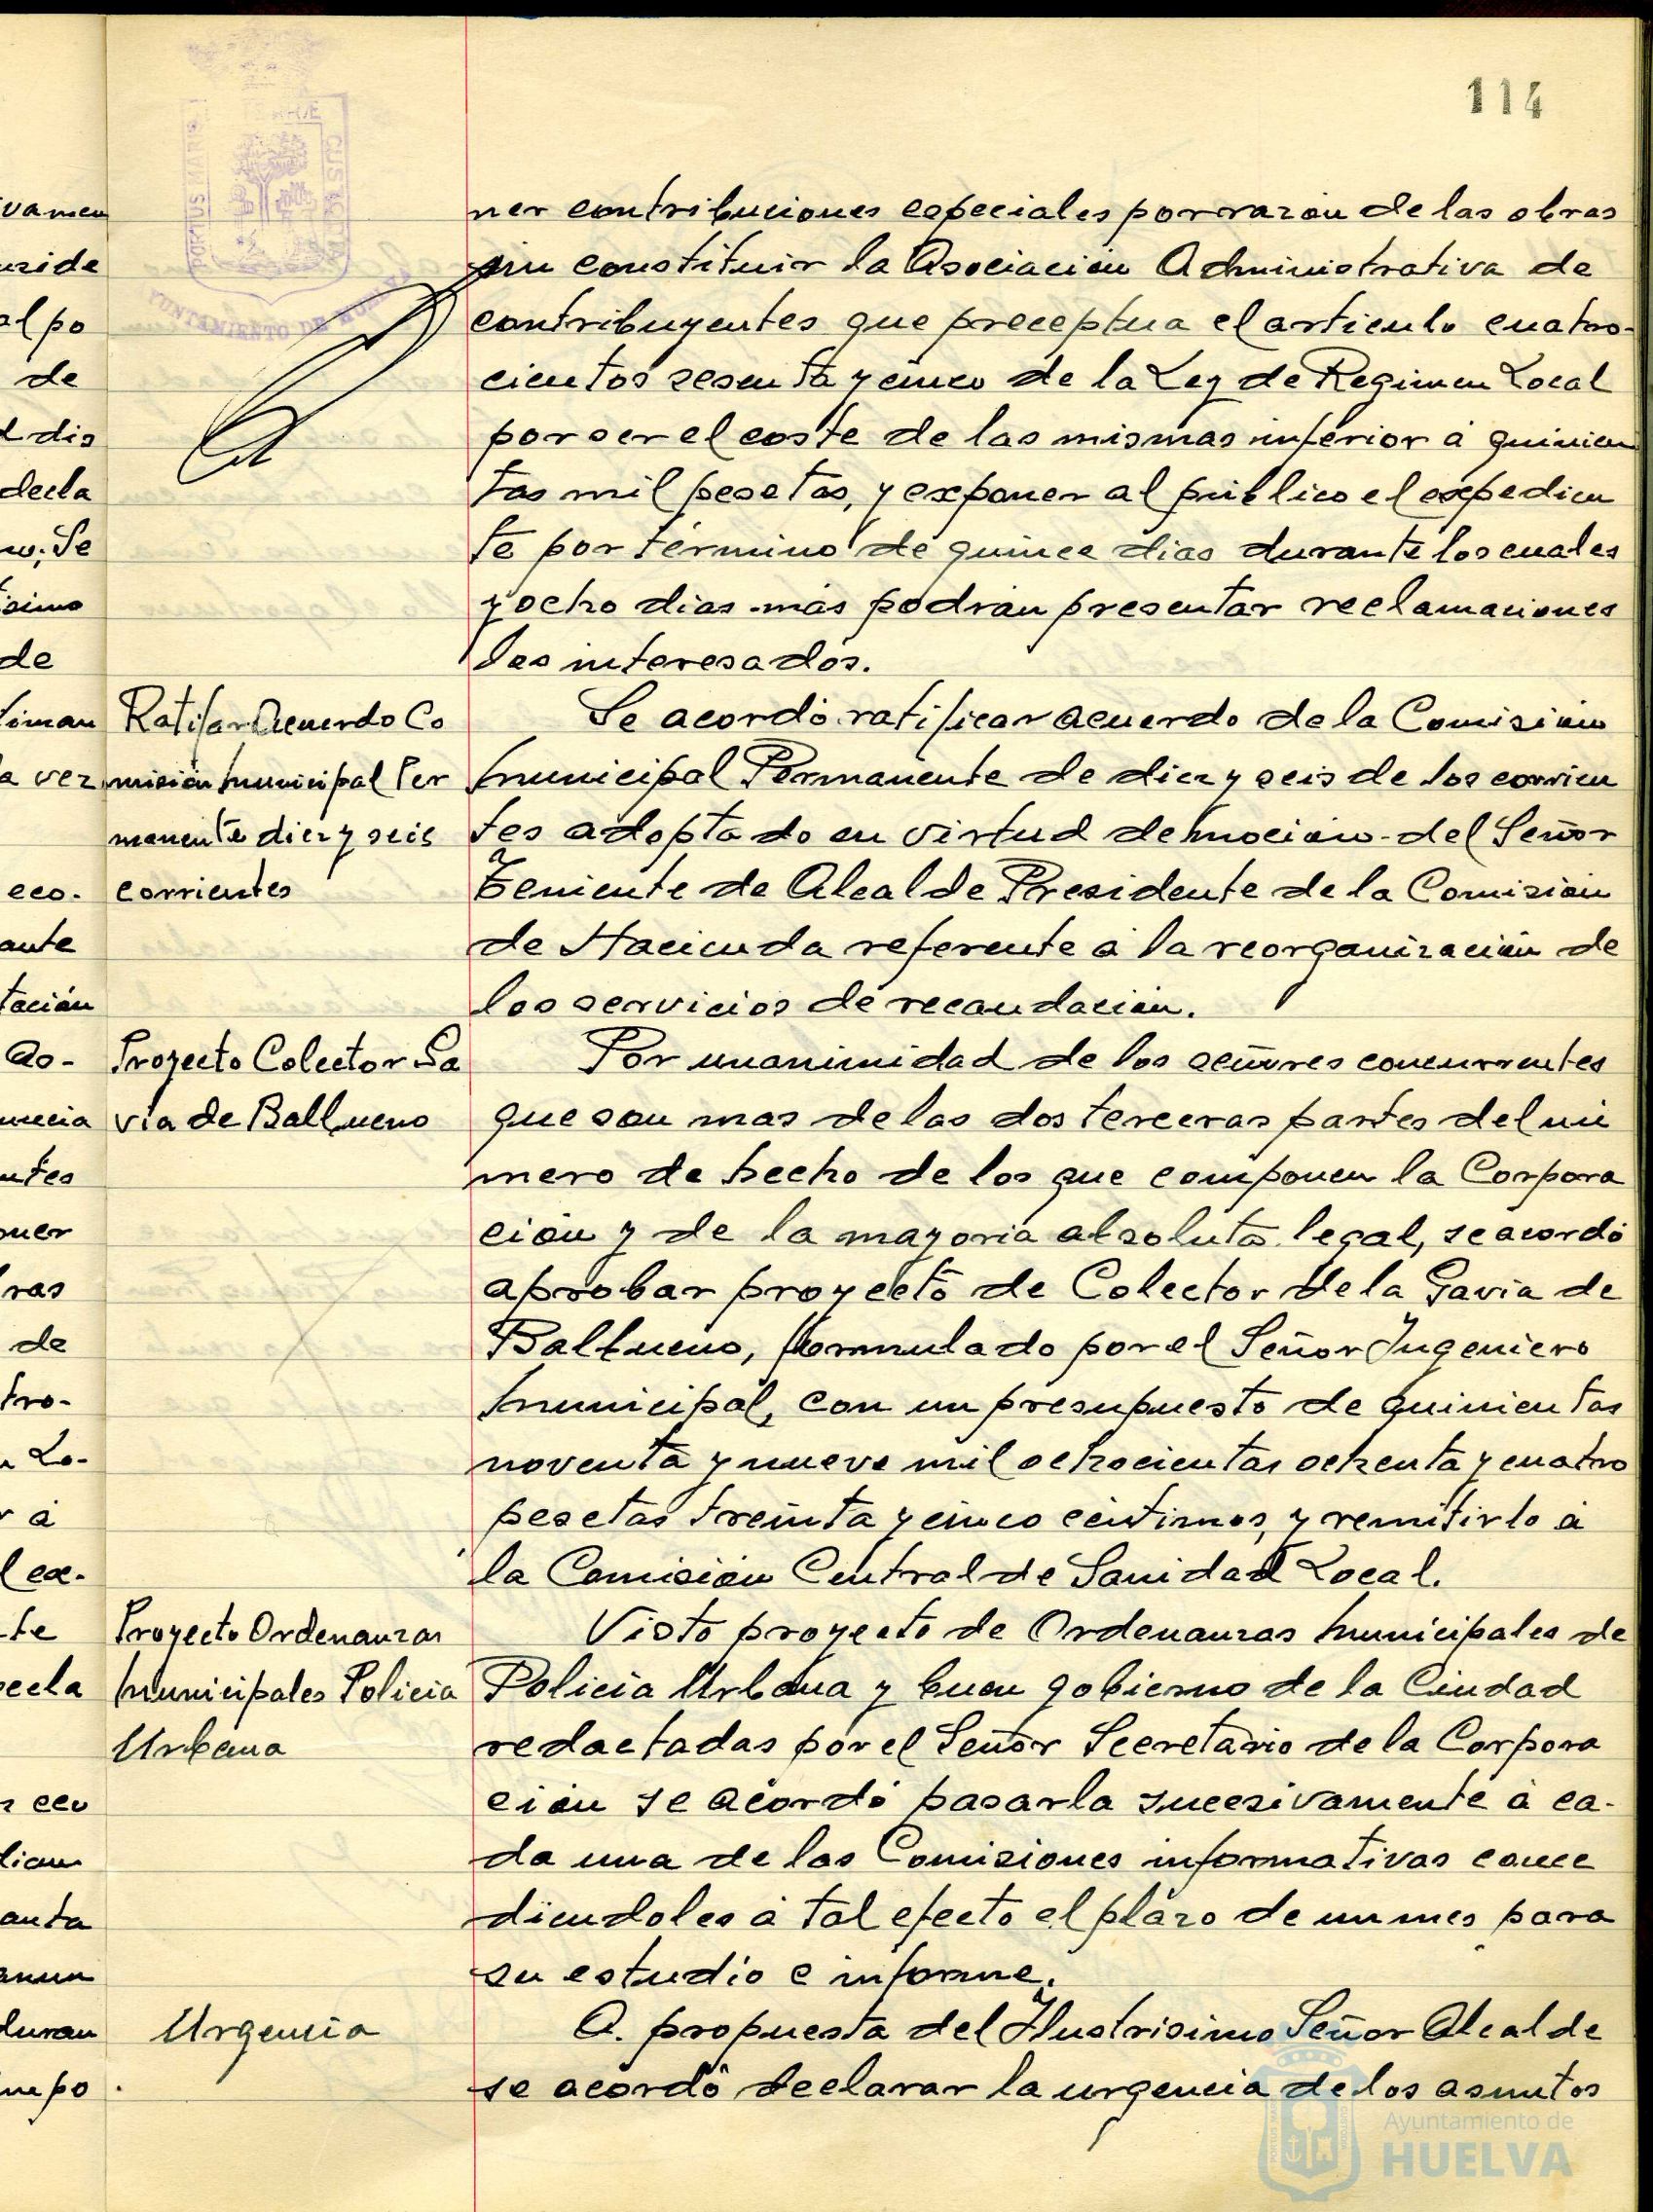 114
PORTUS MARIS
CUSTODIA
AYUNTAMIENTO DE HUELVA
ner contribuciones especiales por razón de las obras
sin constituir la Asociación Administrativa de
contribuyentes que preceptua el articulo cuatro-
cientos sesenta y cinco de la Ley de Regimen Local
por ser el coste de las mismas inferior á quinien
tas mil pesetas, y exponer al público el expedien
te por término de quince dias durante los cuales
y ocho dias mas podrán presentar reclamaciones
los interesados.
Ratifar Acuerdo Co
misión Municipal Per
manente diez y seis
corrientes
Se acordó ratificar acuerdo de la Comisión
Municipal Permanente de diez y seis de los corrien
tes adoptado en virtud de moción del Señor
Teniente de Alcalde Presidente de la Comisión
de Hacienda referente á la reorganización de
los servicios de recaudación.
Proyecto Colector Ga
via de Balbueno
Por unanimidad de los señores concurrentes
que son mas de las dos terceras partes del nú
mero de hecho de los que componen la Corpora
ción y de la mayoria absoluta legal, se acordó
aprobar proyecto de Colector de la Gavia de
Balbueno, formulado por el Señor Ingeniero
Municipal, con un presupuesto de quinientas
noventa y nueve mil ochocientas ochenta y cuatro
pesetas treinta y cinco céntimos, y remitirlo á
la Comisión Central de Sanidad Local.
Proyecto Ordenanzas
Municipales Policia
Urbana
Visto proyecto de Ordenanzas Municipales de
Policia Urbana y buen gobierno de la Ciudad
redactadas por el Señor Secretario de la Corpora
ción se acordó pasarla sucesivamente á ca-
da una de las Comisiones informativas conce
diendoles á tal efecto el plazo de un mes para
su estudio e informe.
Urgencia
A propuesta del Ilustrisimo Señor Alcalde
se acordó declarar la urgencia de los asuntos
Ayuntamiento de
HUELVA